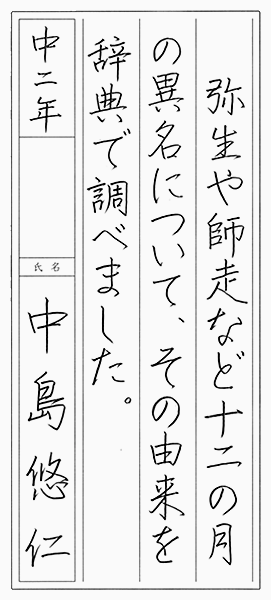 弥生や師走など十二の月
の異名について、その由来を
辞典で調べました。
中二年
氏名
中島悠仁